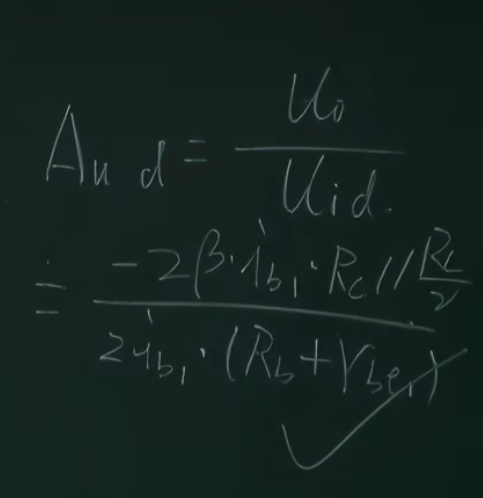 Aud = Uo / Uid.
= -2β·ib1·Rc//RL/2 / 2ib1·(Rb+rbe1)
✓